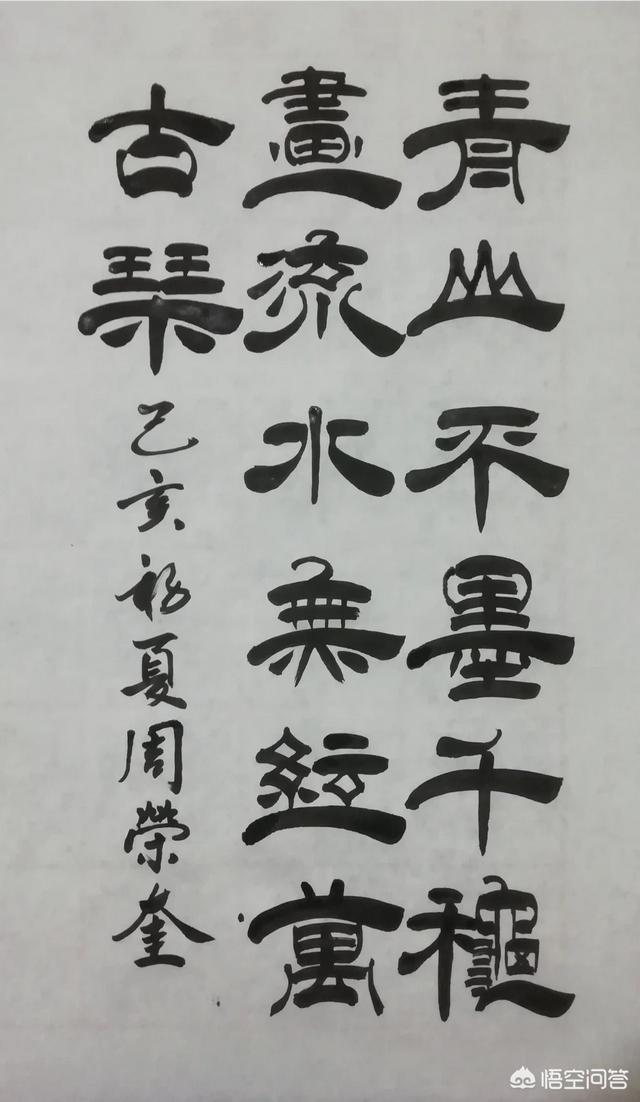 青山不墨千龝
畫流水無絃萬
古琴 己亥初夏周榮奎
悟空问答